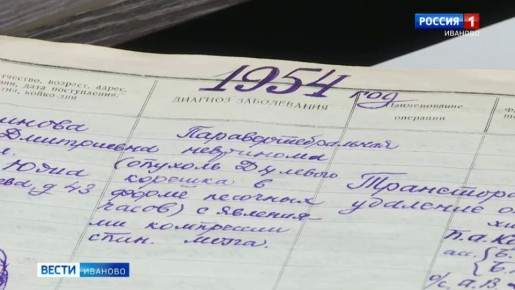 РОССИЯ 1
ИВАНОВО
1954 год
чество, возраст, адрес,
дата поступления,
койко-дни
ДИАГНОЗ ЗАБОЛЕВАНИЯ
Наименование
операции
Дмитриевна
д 43
Паравертебральная
невринома
(опухоль Д4 левого
корешка в
форме песочных
часов) с явления
ми компрессии
спин. мозга.
удаление
ВЕСТИ ИВАНОВО